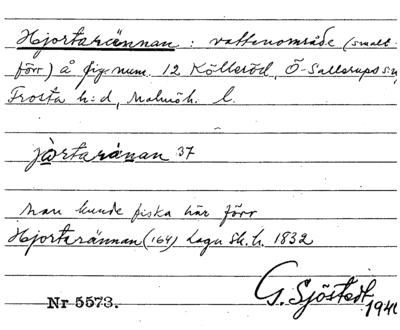 Hjortarännan : vattenområde (smalt
förr) å äg. num. 12 Kölleröd, Ö-Sallerups s:n,
Frosta h:d, Malmöh. l.
jòrtaránan 37
Man kunde fiska här förr
Hjortarännan (164) Laga sk. h. 1832
G. Sjöstedt
1940
Nr 5573.